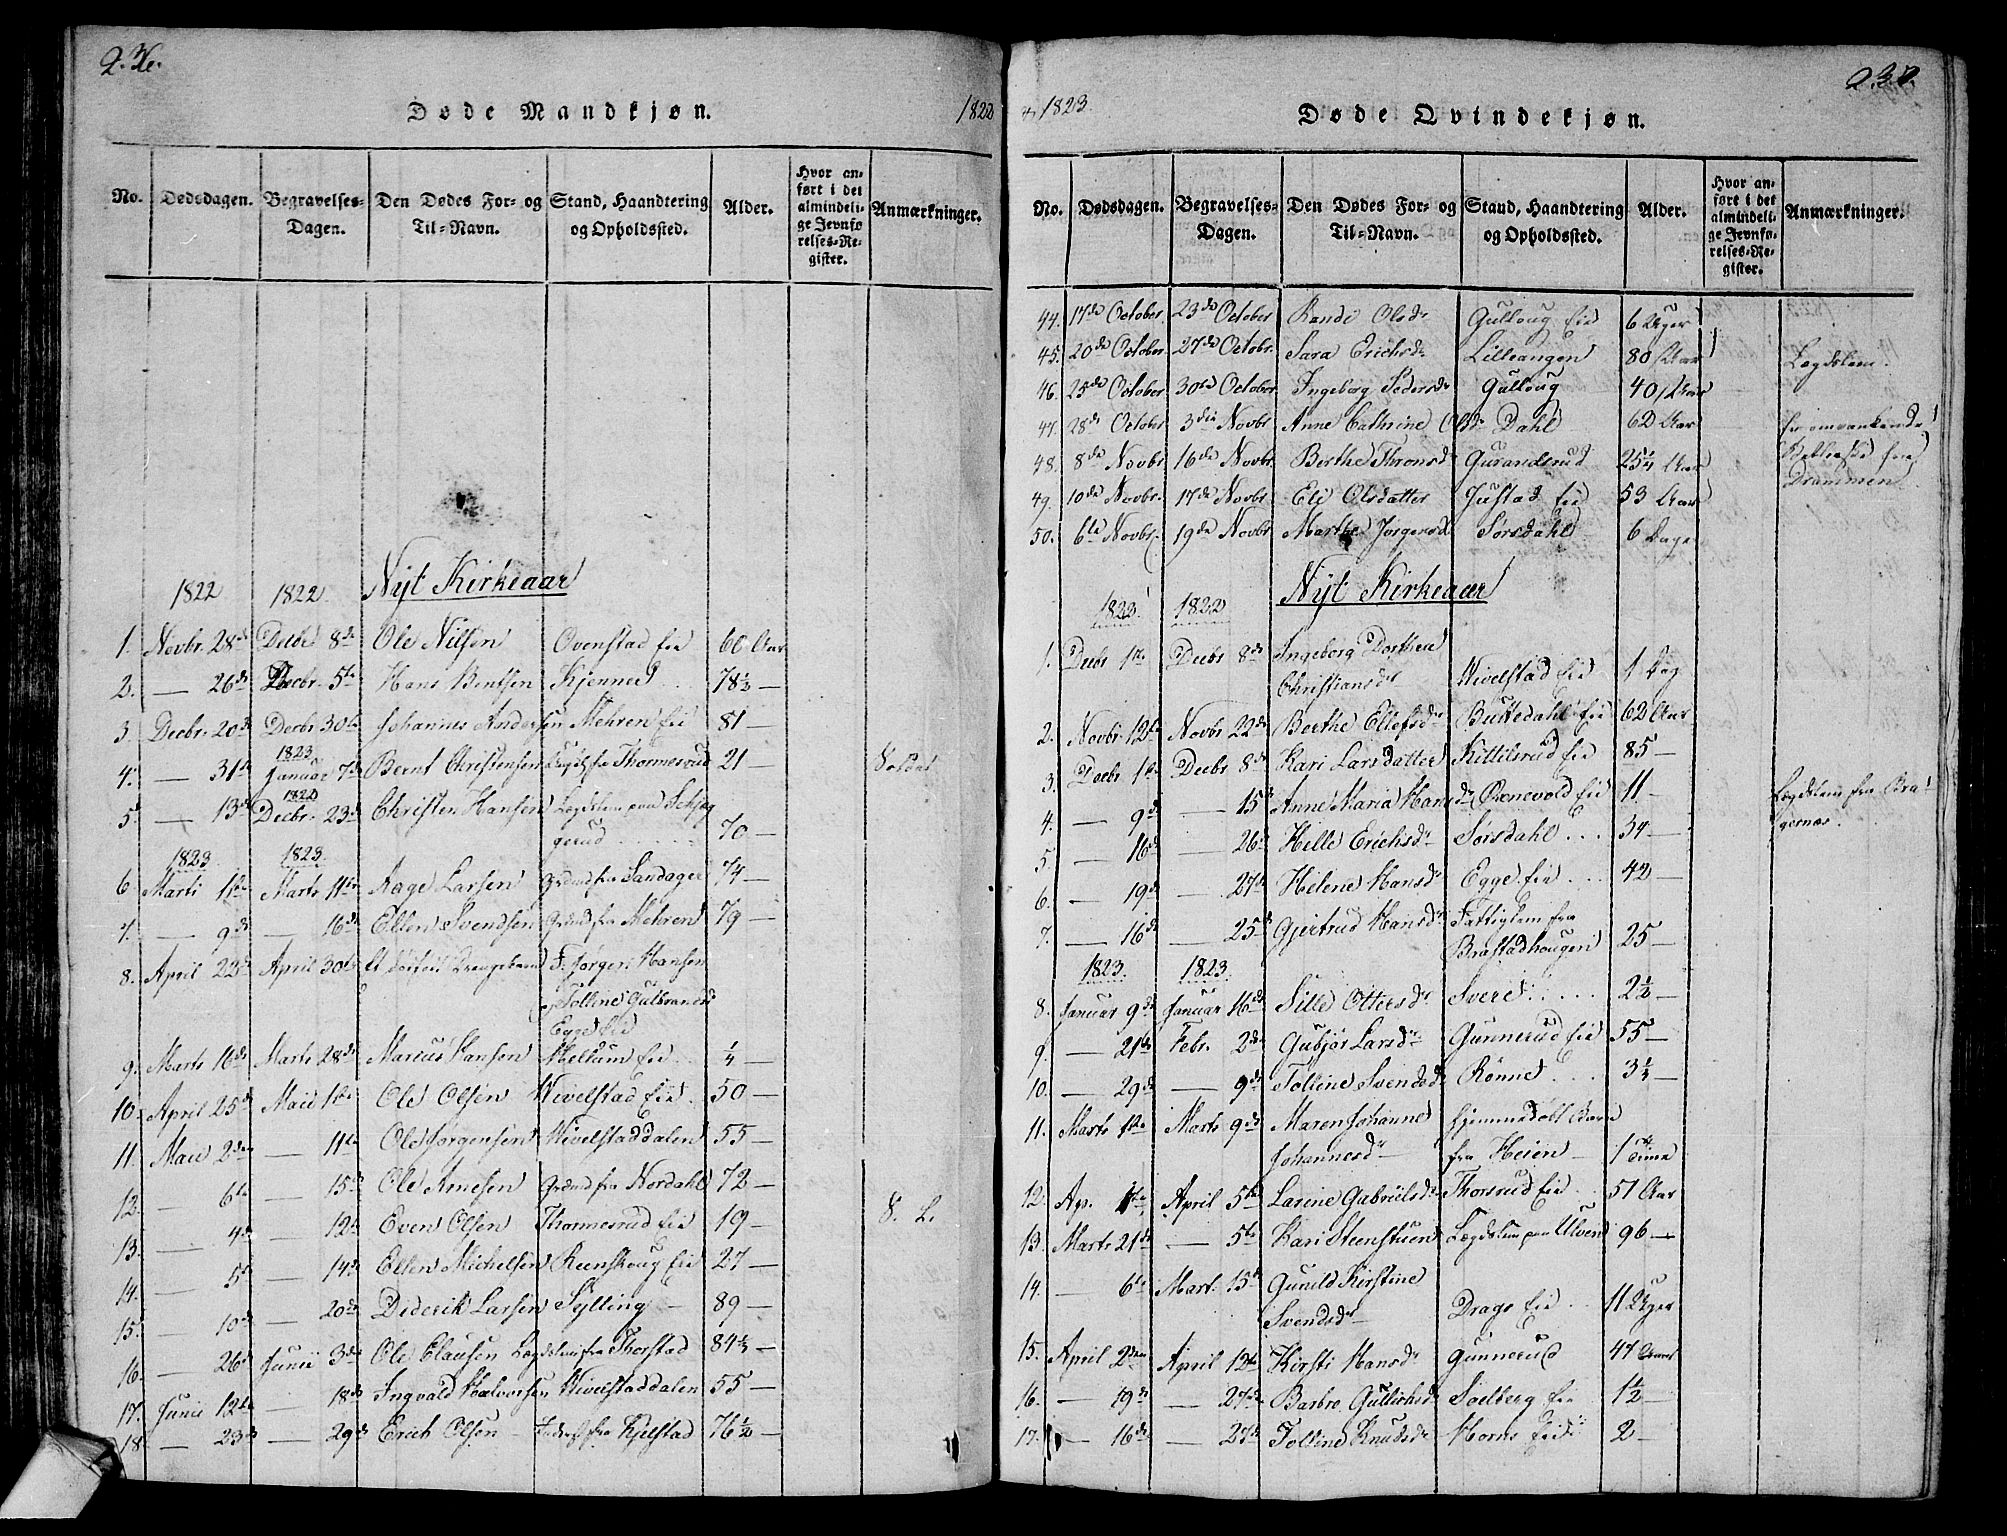 236.
Døde Mandkjøn.
1822
No. Dødsdagen. Begravelses-Dagen. Den Dødes For- og Til-Navn. Stand, Haandtering og Opholdssted. Alder. Hvor anført i det almindelige Jevnførelses-Register. Anmærkninger.
Nyt Kirkeaar
1822 1822
1. Novbr. 28de Decbr 8de Ole Nilsen Ovenstad Eie 60 Aar
2. — 26de Decbr. 5te Hans Bentsen Kjenned 78½ —
3. Decbr. 20de Decbr 30te Johannes Andersen Mehren Eie 81 —
1823
4. — 31te Januar 7de Bernt Christensen fra Thormesrud 21 — Soldat
1822
5. — 13de Decbr. 23de Christen Hansen Lægdslem paa
gerud 70 —
1823. 1823.
6 Marti 1te Marts 11te Aage Larsen fra Sandager 74 —
7. — 9de — 16de Ellen Svendsen fra Mehren 79 —
8. April 22de April 30te Et F: Jørgen Hansen
Tolline Gulbrandsd
Egge Eie
9. Marts 16de Marts 28de Marius Hansen Mellum Eie ¼ —
10. April 25de Maii 1te Ole Olsen Wivelstad Eie 50 —
11. Maii 2den — 11te Ole Jørgensen Wivelstaddalen 55 —
12. — 6te — 15de Ole Arnesen fra Nordahl 72 —
13. — 4de — 12te Even Olsen Thormesrud Eie 19 — S. L.
14. — 5te — 14de Ellen Michelsen Reenskoug Eie 27 —
15. — 10de — 20de Diderik Larsen Sylling — 89 —
16. — 26de Junii 3de Ole Clausen Lægdslem fra Thorstad 84½ —
17. Junii 12te — 18de Ingvald Halvorsen Wivelstaddalen 55 —
18. — 23de — 29de Erich Olsen — fra Kjelstad 76½ —
237.
1823.
Døde Qvindekjøn.
No. Dødsdagen. Begravelses-Dagen. Den Dødes For- og Til-Navn. Stand, Haandtering og Opholdssted. Alder. Hvor anført i det almindelige Jevnførelses-Register. Anmærkninger.
44. 17de October 23de October Rande Olsdr Gulloug Eie 6 Uger
45. 20de October 27de Octobr. Sara Erichsdr Lilleangen 80 Aar Lægdslem.
46. 25de October 30te October Ingeborg Pedersdr Gulloug 40 Aar
47. 28de October 3die Novbr Anne Cathrine Olsdr Dahl 62 Aar En omvankende
48. 8de Novbr 16de Novbr. Berthe Thronsd Gurandsrud 25¼ Aar fra
49. 10de Novbr. 17de Novbr Eli Olsdatter Justad Eie 53 Aar Drammen
50. 6te Novbr. 19de Novbr Marthe Jørgensd Sørsdahl 6 Dage
Nyt Kirkeaar
1822 1822
1. Decbr 1te Decbr 8de Ingeborg Dorthea
Christiansdr Wivelstad Eie 1 Dag
2. Novbr. 12te Novbr 22de Berthe Ellefsdr Buttedahl Eie 62 Aar
3. Decbr 1te Decbr 8de Kari Larsdatter Kittilsrud Eie 85 —
4. — 9de — 15de Anne Maria Hansdr Ørnevold Eie 11 — Lægdslem fra Bra-
gernæs.
5. — 16de — 26de Helle Erichsdr Sørsdahl . . . 34 —
6. — 19de — 27de Helene Hansdr Egge Eie . . . 42 —
7. — 16de — 25de Gjertrud Hansdr Fattiglem fra
Brastadhougen 25 —
1823. 1823.
8. Januar 9de Januar 16de Sille Ottersdr Svere . . . . . 2½ —
9. — 21te Febr. 2den Gubjør Larsdr Gunnerud Eie 55 —
10. — 29de — 9de Tolline Svendsdr Rønne . . . . 3½ —
11. Marts 1te Marts 9de Maren Johanne hjemmedøbt Barn
Johannesdr — fra Heien — 1 Time
12. Ap. 1te April 5te Larine Gabrielsdr Thorsrud Eie . 51 Aar
13. Marts 21de — 5te Kari Steenstuen Lægdslem paa Ulven 96 —
14. — 6te Mart. 15de Gunild Kirstine
Svendsdr — Drags Eie . . 11 Uger
15. April 2den April 13te Kirsti Hansdr Gunnerud 47 Aar
16. — 19de — 27de Barbro Gullichsdr Soelberg Eie 1½ —
17. — 16de — 27de Tolline Knudsdr Horns Eie 2 —